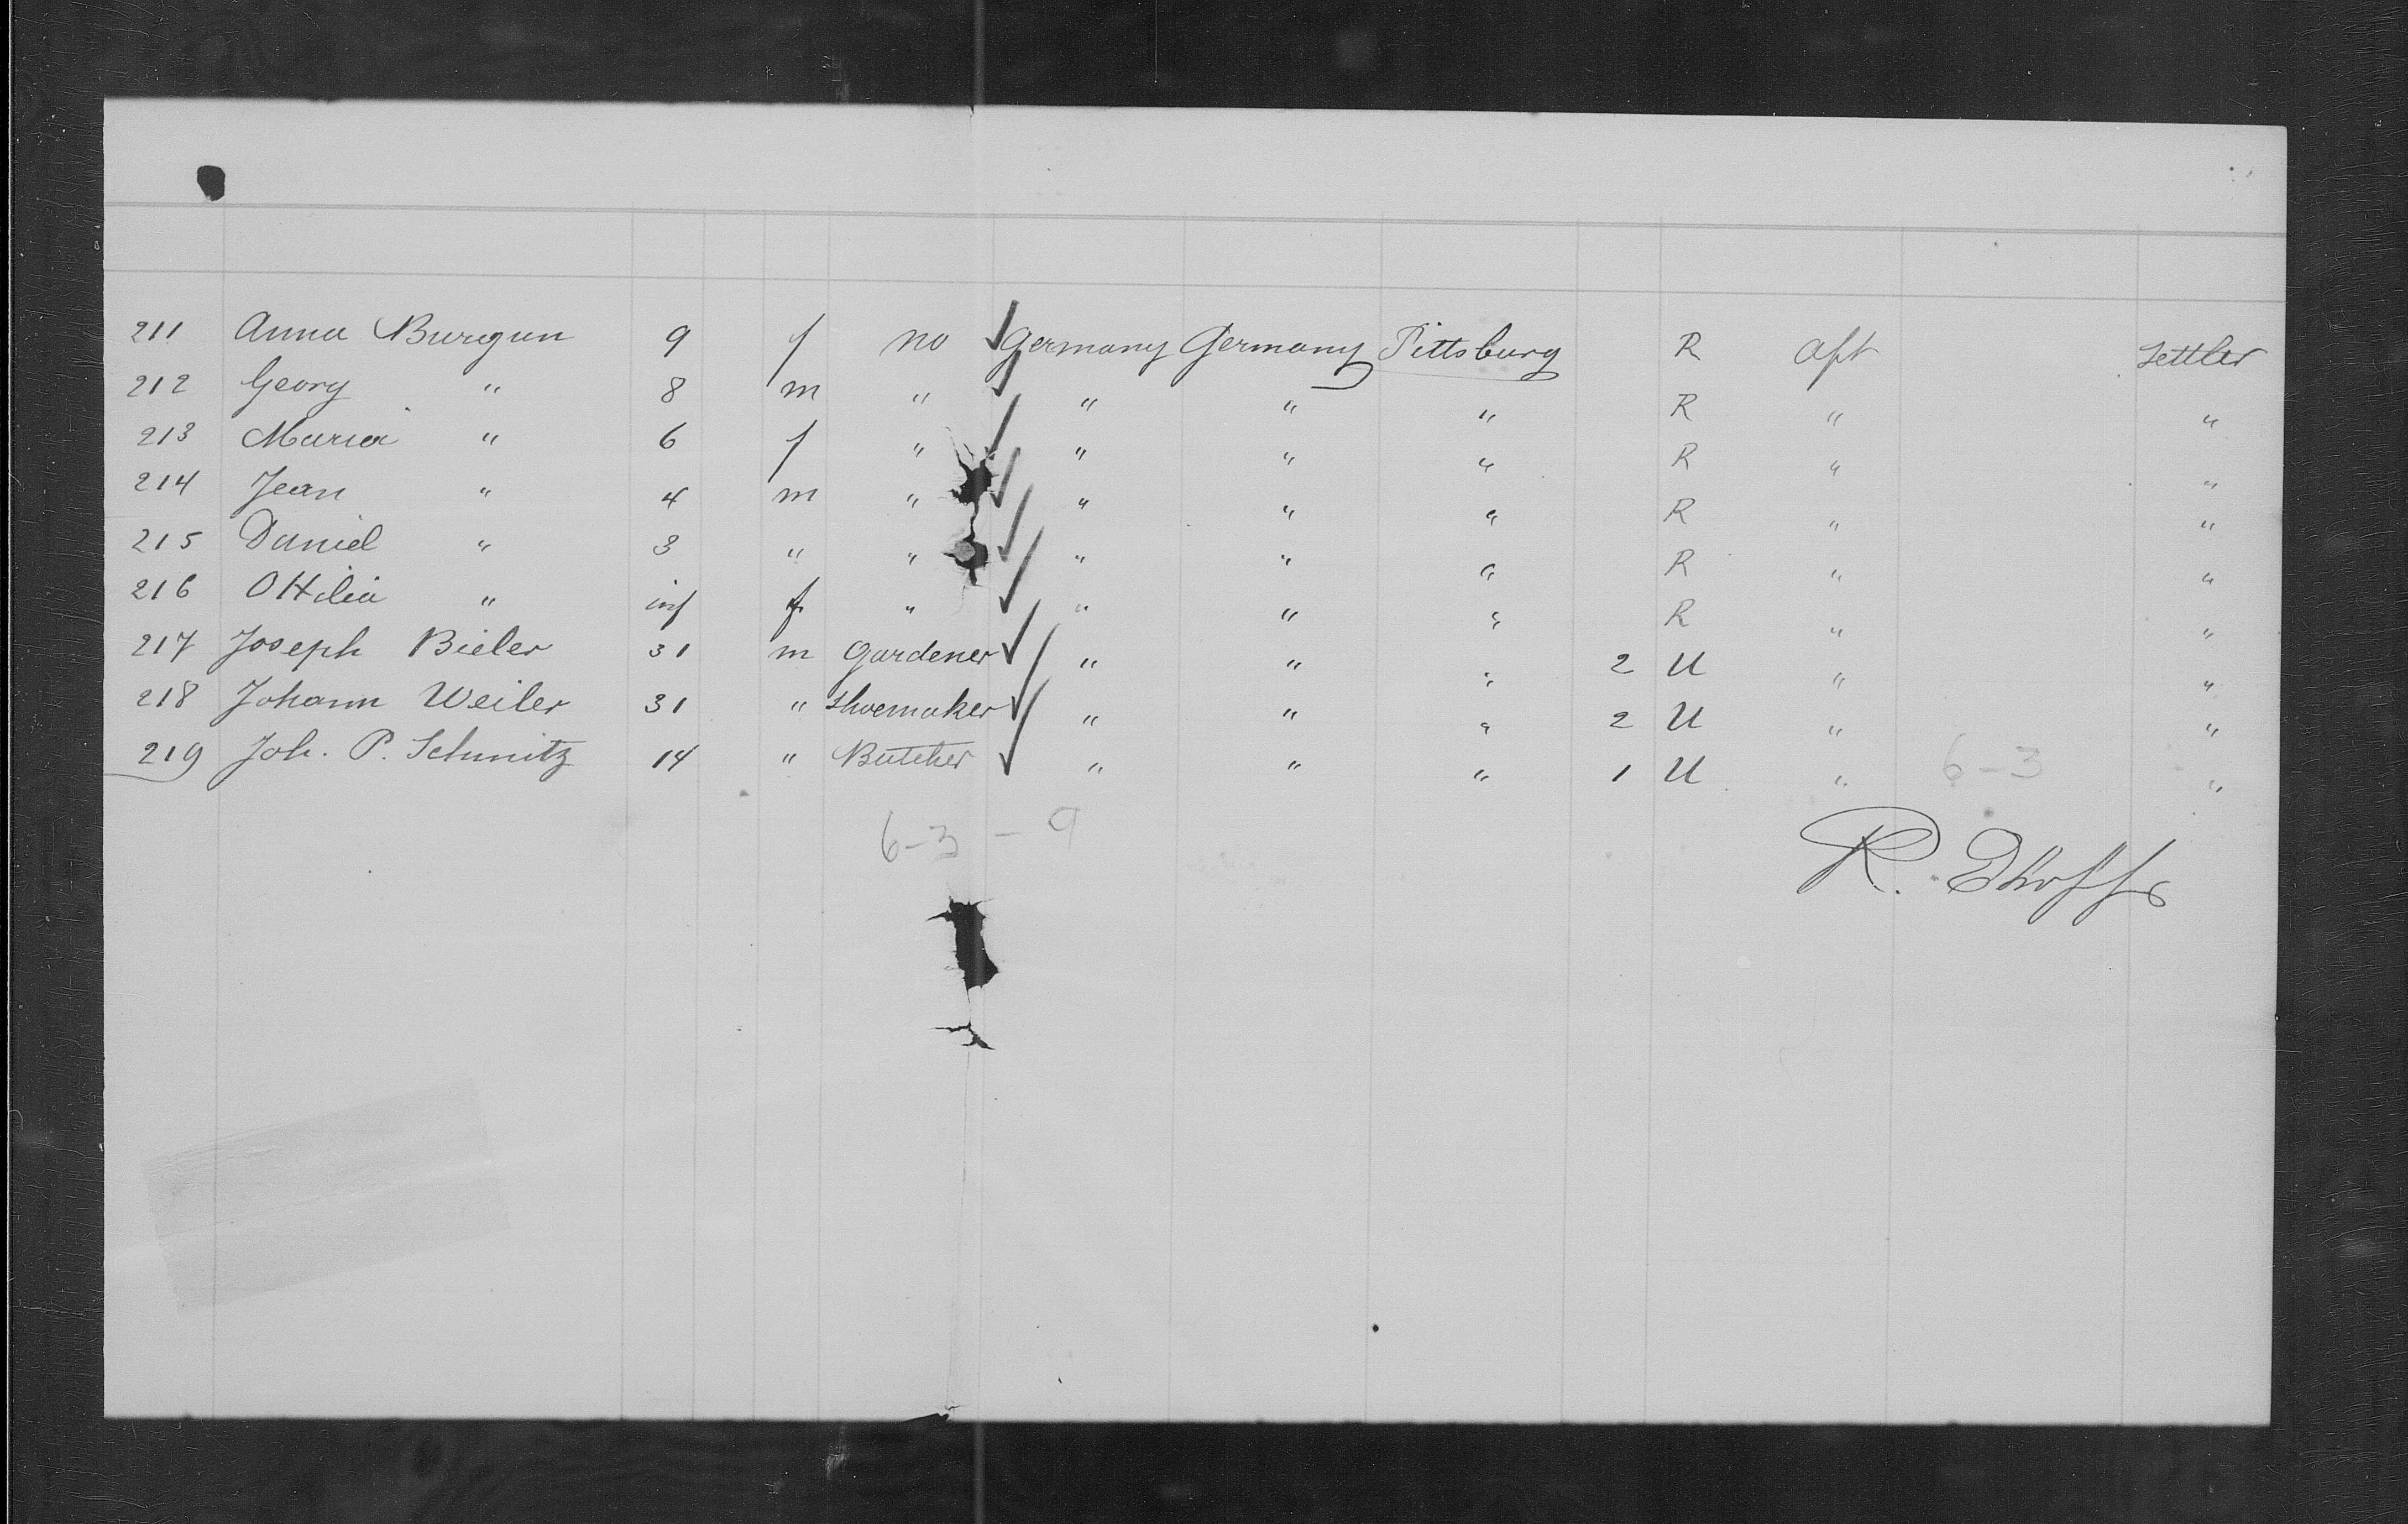 211 Anna Burgun 9 f no Germany Germany Pittsburg R aft settler
212 Georg " 8 m " " " " R " "
213 Maria " 6 f " " " " R " "
214 Jean " 4 m " " " " R " "
215 Daniel " 3 " " " " " R " "
216 Ottilia " inf f " " " " R " "
217 Joseph Bieler 31 m Gardener " " " 2 U " "
218 Johann Weiler 31 " Shoemaker " " " 2 U " "
219 Joh. P. Schmitz 14 " Butcher " " " 1 U " 6-3 "
6-3 - 9
R.